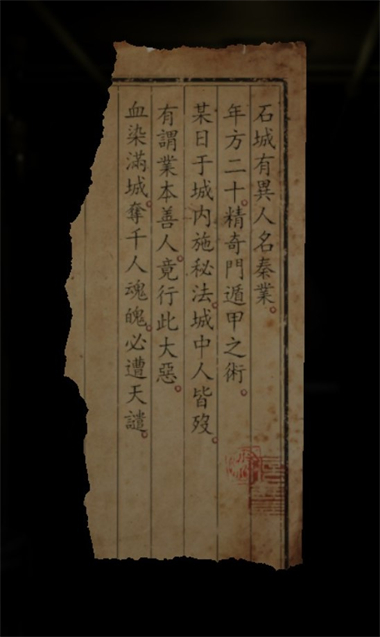 石城有異人名秦業。
年方二十。精奇門遁甲之術。
某日于城内施秘法。城中人皆歿。
有謂業本善人。竟行此大惡。
血染滿城。奪千人魂魄。必遭天譴。